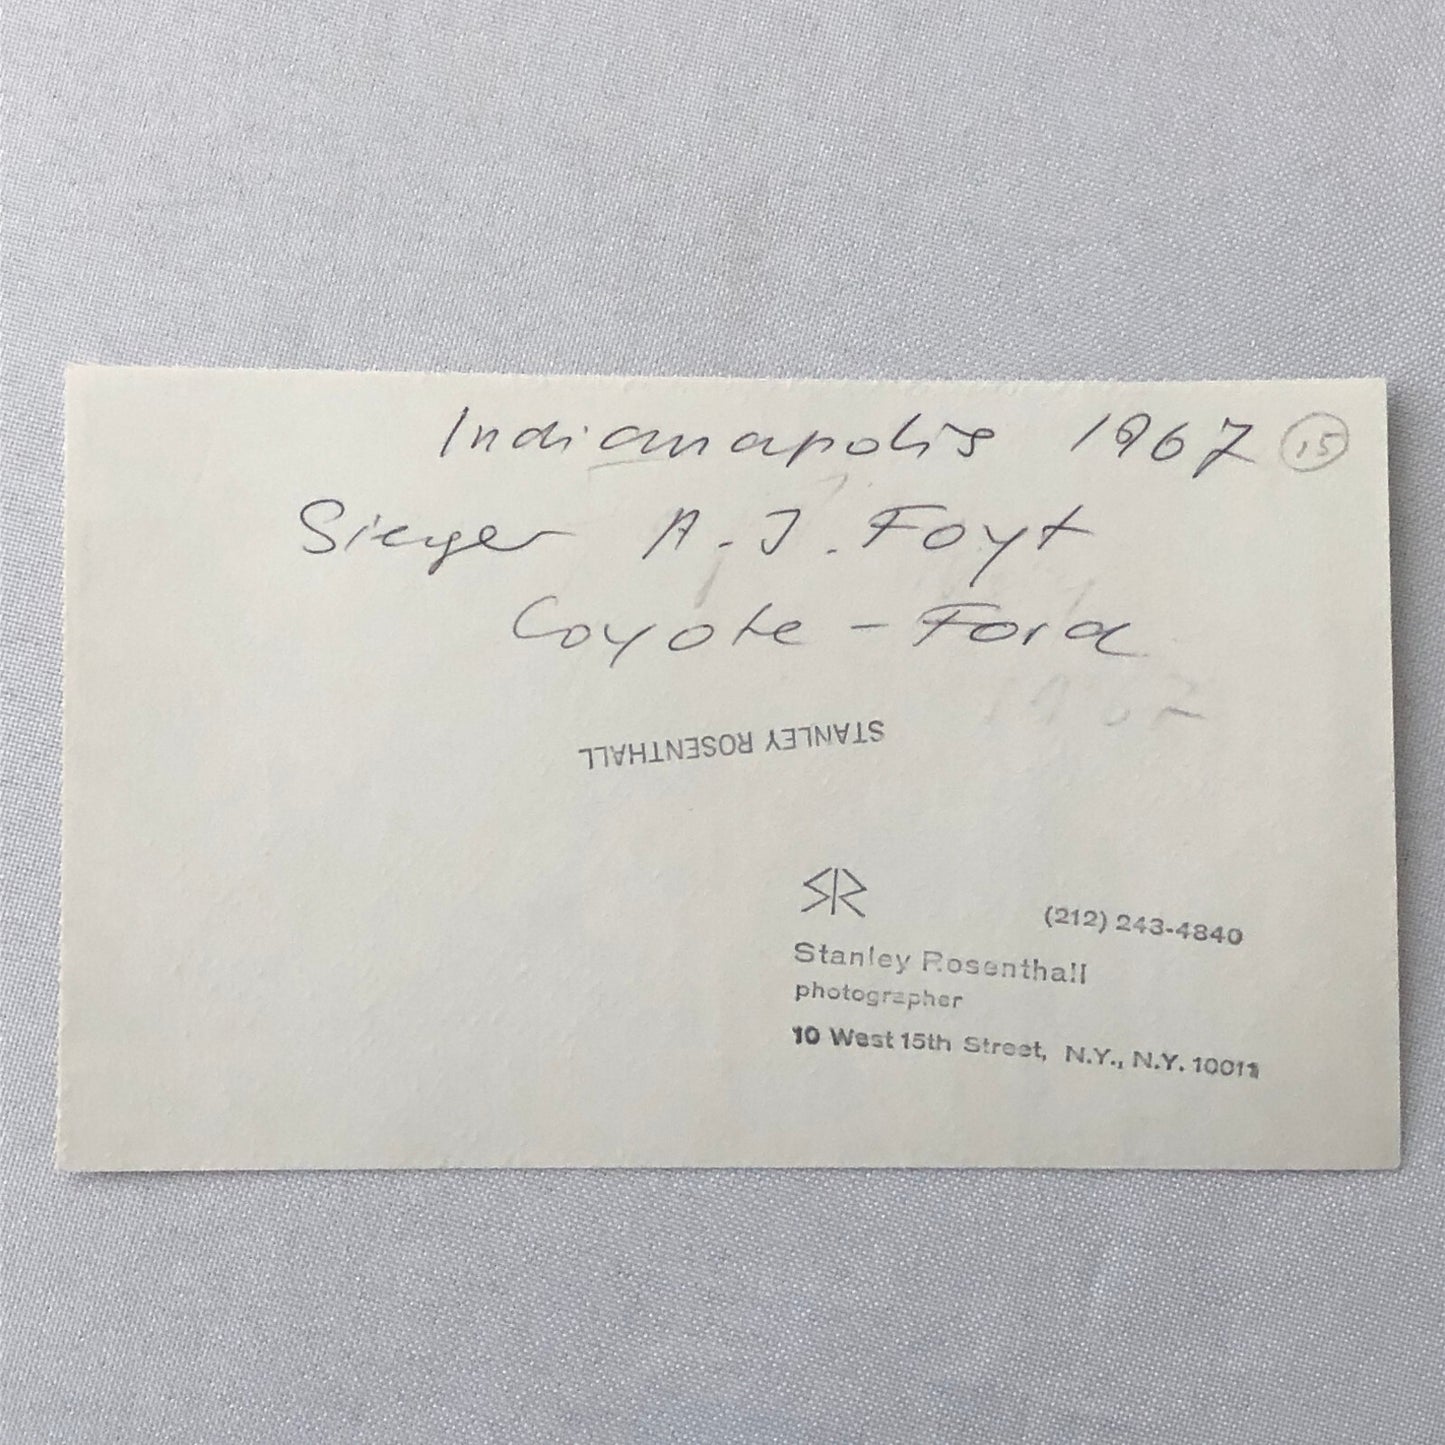 Indianapolis 1967 15
Sieger A.J. Foyt
Coyote - Ford
1967
STANLEY ROSENTHALL
SR
(212) 243-4840
Stanley Rosenthall
photographer
10 West 15th Street, N.Y., N.Y. 10011